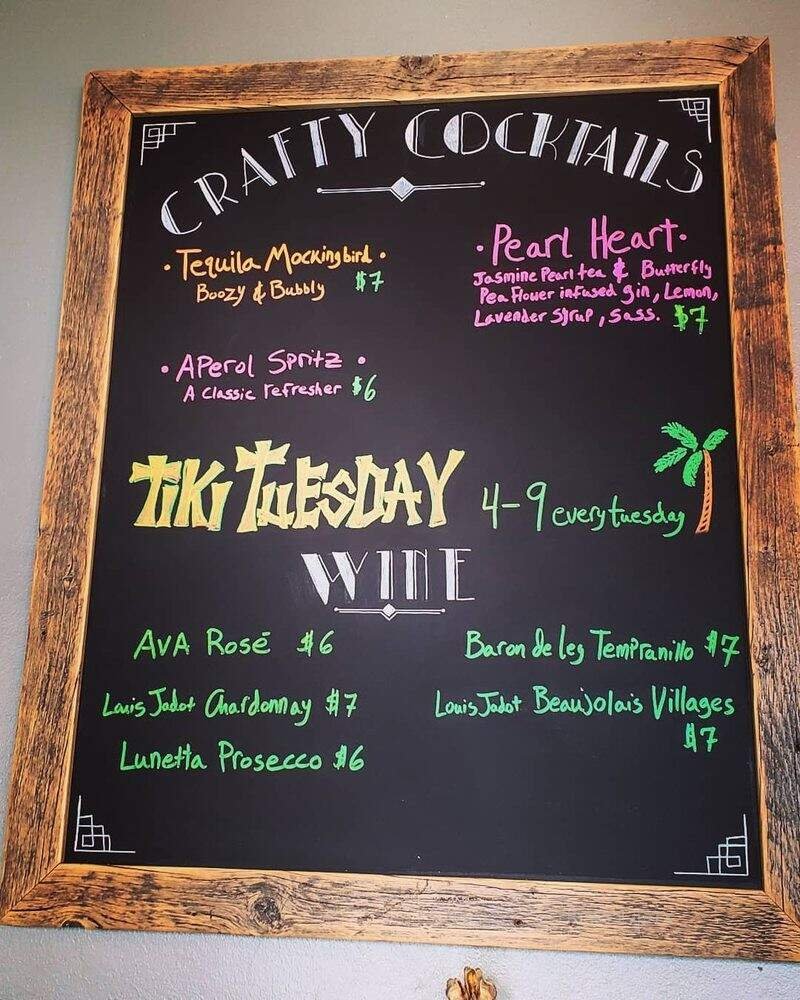 CRAFTY COCKTAILS
· Tequila Mockingbird ·
Boozy & Bubbly $7
· Pearl Heart ·
Jasmine Pearl tea & Butterfly
Pea Flower infused gin, Lemon,
Lavender Syrup, sass. $7
· APerol Spritz ·
A classic refresher $6
TIKI TUESDAY 4-9 every tuesday
WINE
AVA Rosé $6
Louis Jadot Chardonnay $7
Lunetta Prosecco $6
Baron de Ley Tempranillo $7
Louis Jadot Beaujolais Villages
$7